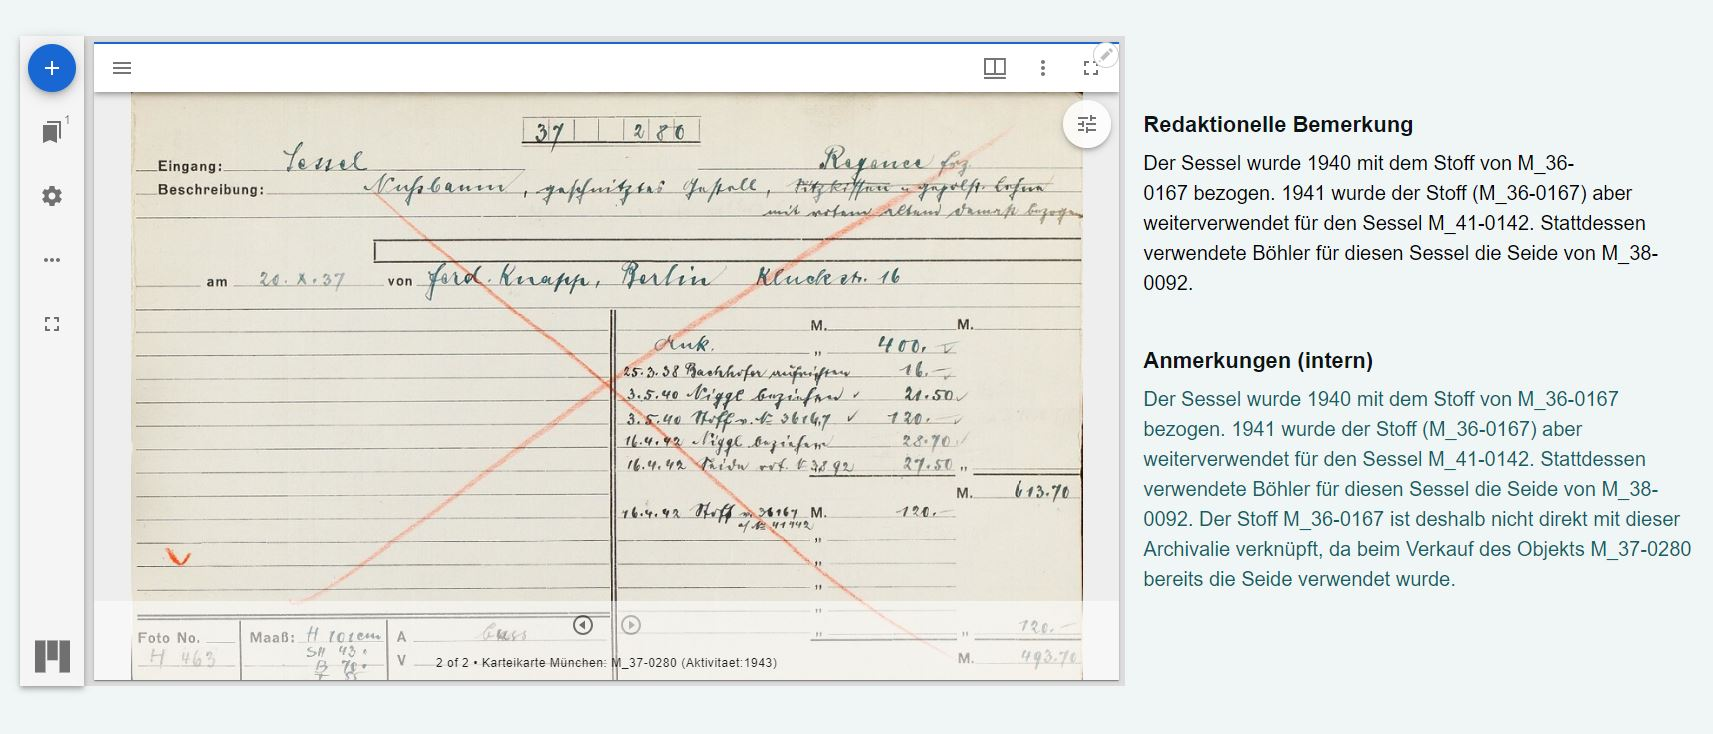 37 280
Eingang: Sessel Regence frz.
Beschreibung: Nußbaum, geschnitztes Gestell, Sitzkissen u. gepolst. Lehne
mit rotem altem Damast bezogen
am 20. X. 37 von Ferd. Knapp, Berlin Kluckstr. 16
M. M.
Ank. „ 400.-
25.3.38 Bachhofer aufrichten 16.-
3.5.40 Niggl beziehen 21.50
3.5.40 Stoff v. No 36167 120.-
16.4.42 Niggl beziehen 28.70
16.4.42 Seide rot. 3892 27.50 „
M. 613.70
16.4.42 Stoff v. 36167 M. 120.-
a/ No 41142
„
„
„
„
„ „ 120.-
Foto No. Maaß: H 101cm A
H 463 SH 43 V M. 493.70
B 70
T
2 of 2 • Karteikarte München: M_37-0280 (Aktivitaet:1943)
1
Redaktionelle Bemerkung
Der Sessel wurde 1940 mit dem Stoff von M_36-
0167 bezogen. 1941 wurde der Stoff (M_36-0167) aber
weiterverwendet für den Sessel M_41-0142. Stattdessen
verwendete Böhler für diesen Sessel die Seide von M_38-
0092.
Anmerkungen (intern)
Der Sessel wurde 1940 mit dem Stoff von M_36-0167
bezogen. 1941 wurde der Stoff (M_36-0167) aber
weiterverwendet für den Sessel M_41-0142. Stattdessen
verwendete Böhler für diesen Sessel die Seide von M_38-
0092. Der Stoff M_36-0167 ist deshalb nicht direkt mit dieser
Archivalie verknüpft, da beim Verkauf des Objekts M_37-0280
bereits die Seide verwendet wurde.